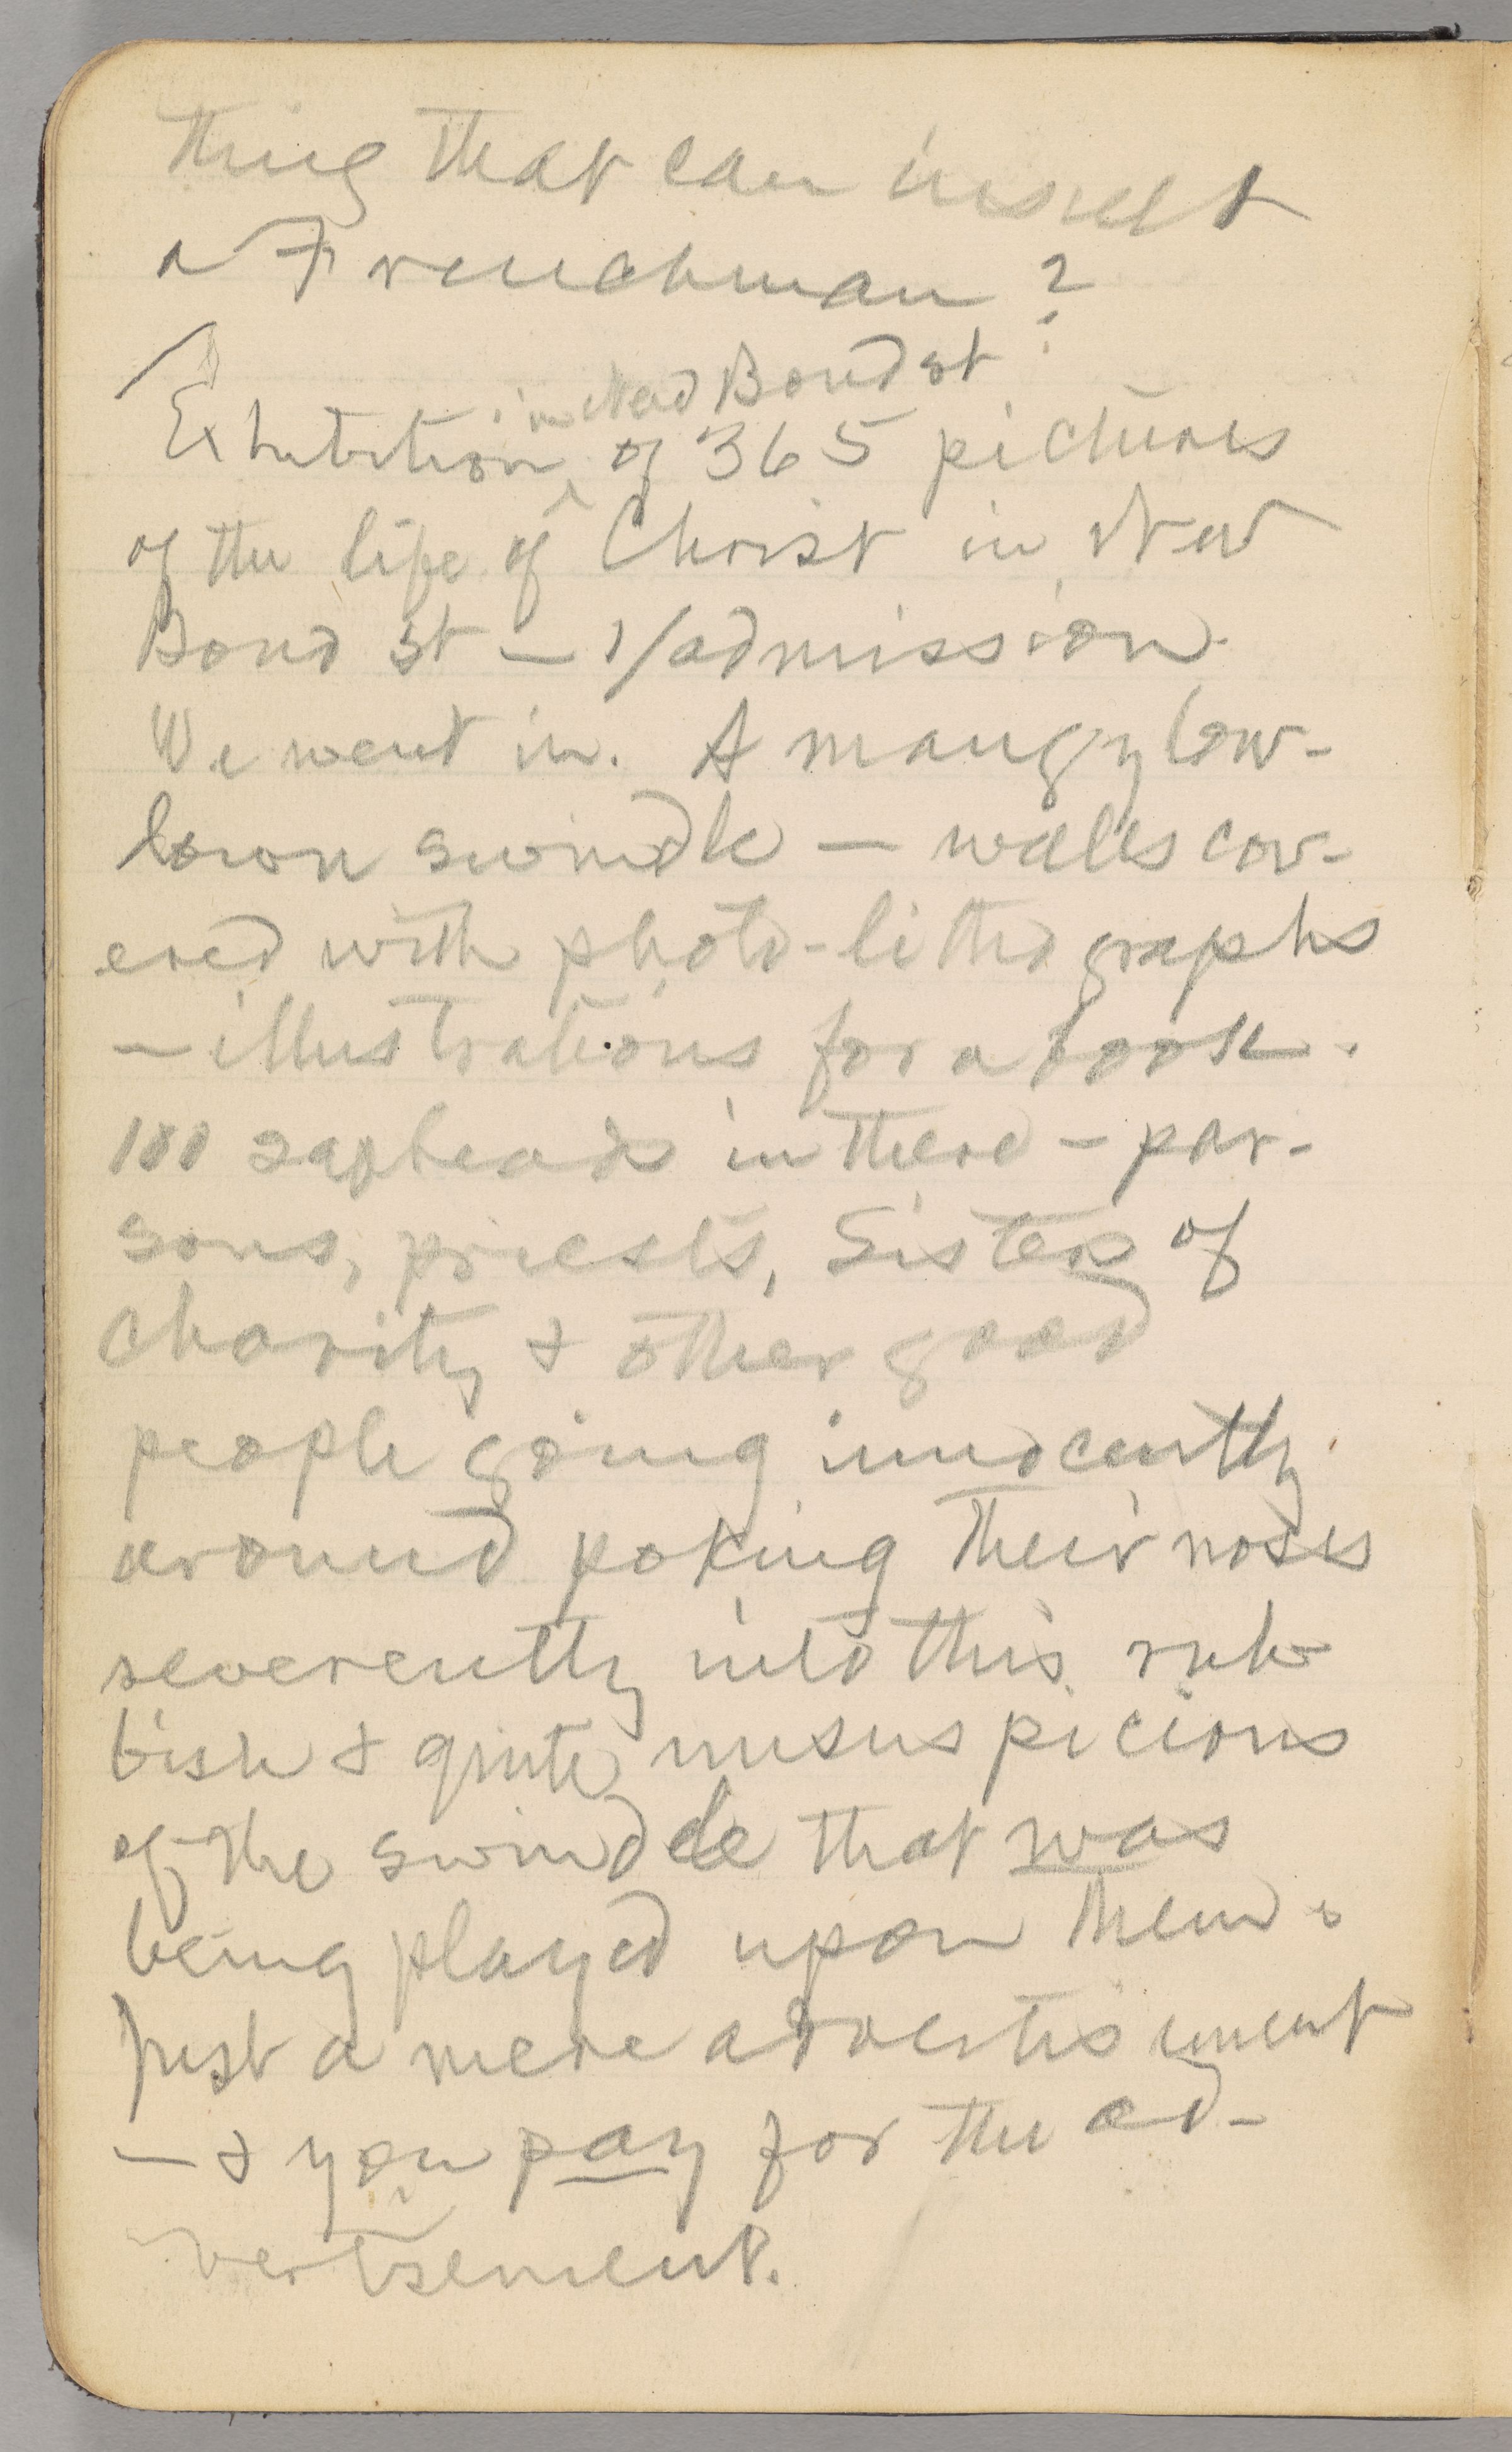 thing that can insult
a Frenchman?
in New Bond st
Exhibition of 365 pictures
of the life of Christ in New
Bond St — 1/admission.
We went in. A mangy low-
down swindle — walls cov-
ered with photo-lithographs
— illustrations for a book.
100 sapheads in there — par-
sons, priests, Sisters of
Charity & other good
people going innocently
around poking their noses
reverently into this rub-
bish & quite unsuspicious
of the swindle that was
being played upon them.
Just a mere advertisement
— & you pay for the ad-
vertisement.